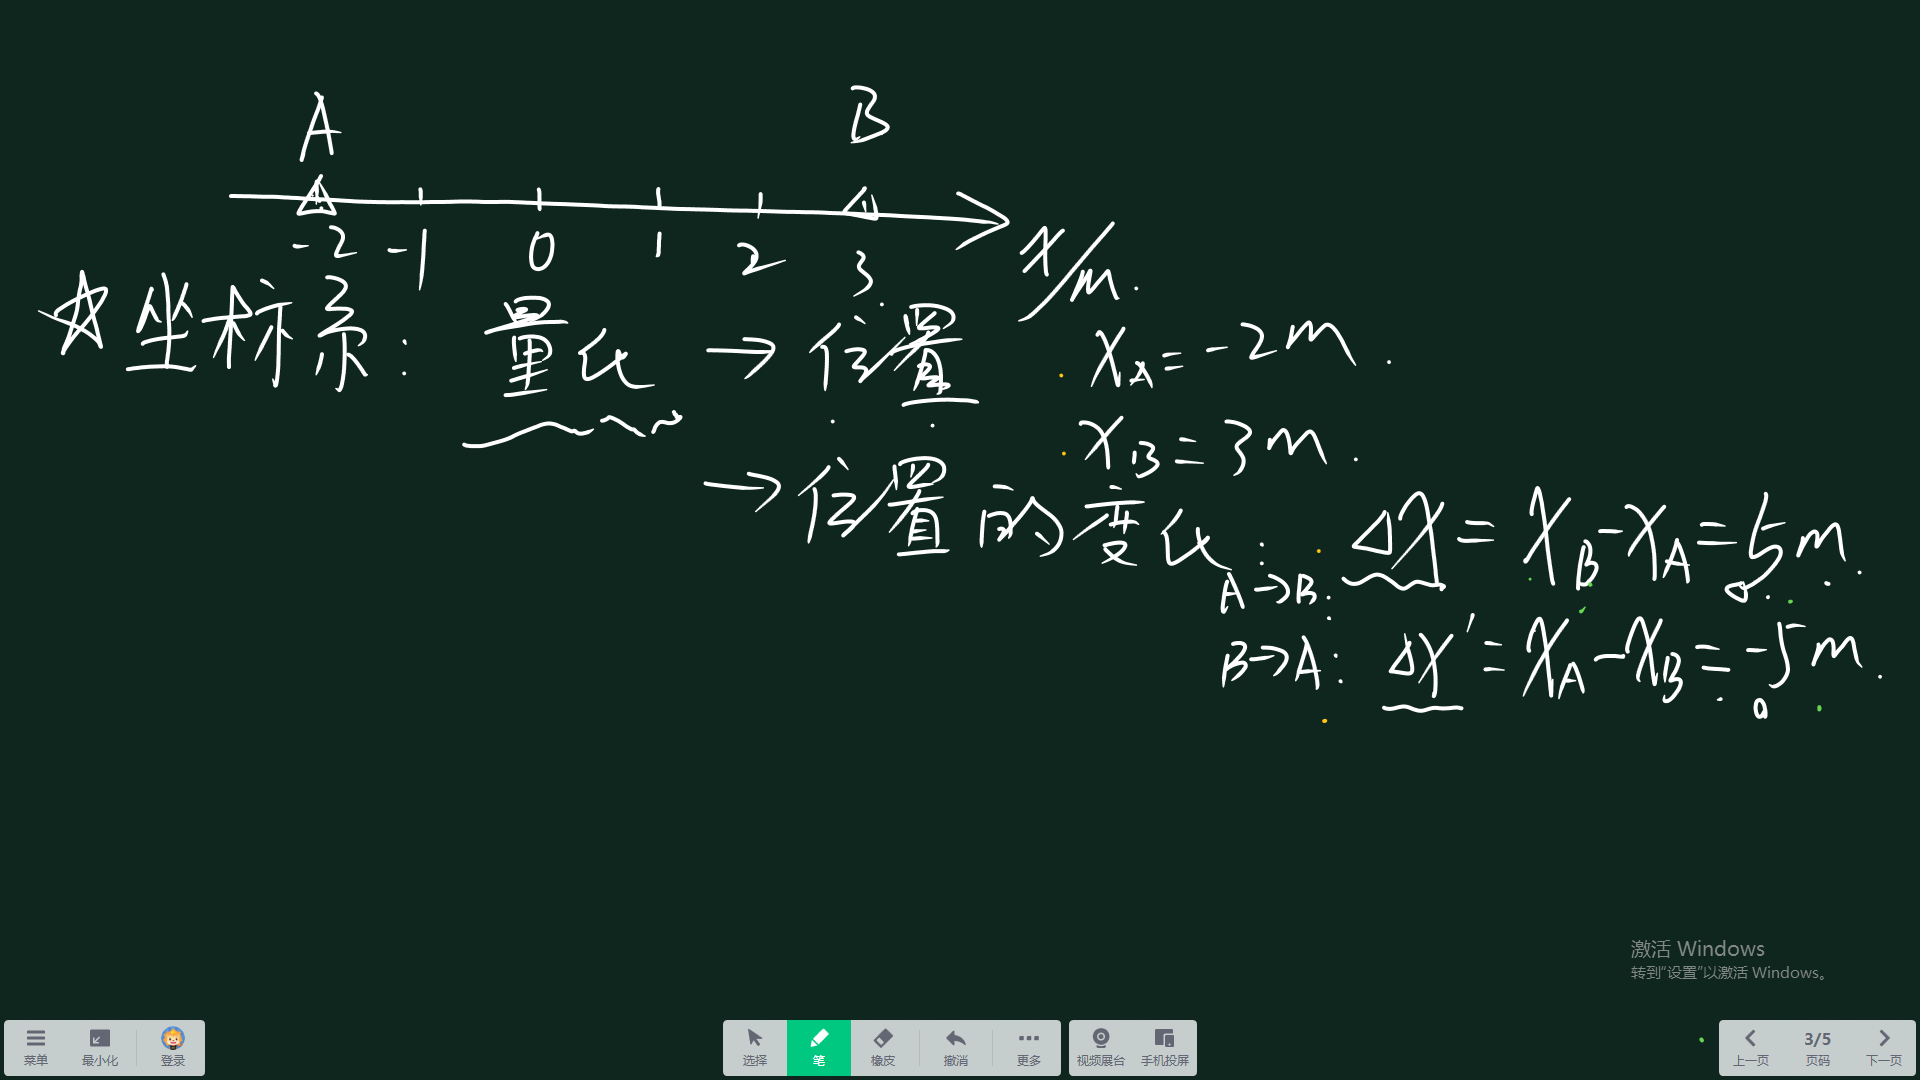 A B
-2 -1 0 1 2 3 x/m.
☆坐标系: 量化 → 位置 x_A = -2m.
x_B = 3m.
→ 位置的变化:
A→B: Δx = x_B - x_A = 5m.
B→A: Δx' = x_A - x_B = -5m.
激活 Windows
转到“设置”以激活 Windows。
菜单 最小化 登录 选择 笔 橡皮 撤消 更多 视频展台 手机投屏 上一页 3/5 页码 下一页